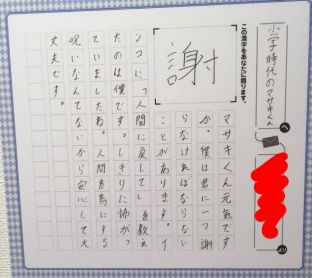 小学時代のマサキくん
へ
より
この漢字をあなたに贈ります。
謝
マサキくん元気です
か。僕は君に一つ謝
らなければならない
ことがあります。イ
ンコに「人間に戻して」と教え
たのは僕です。しきりに怖がっ
ていましたね。人間を鳥にする
呪いなんてないから安心して大
丈夫です。